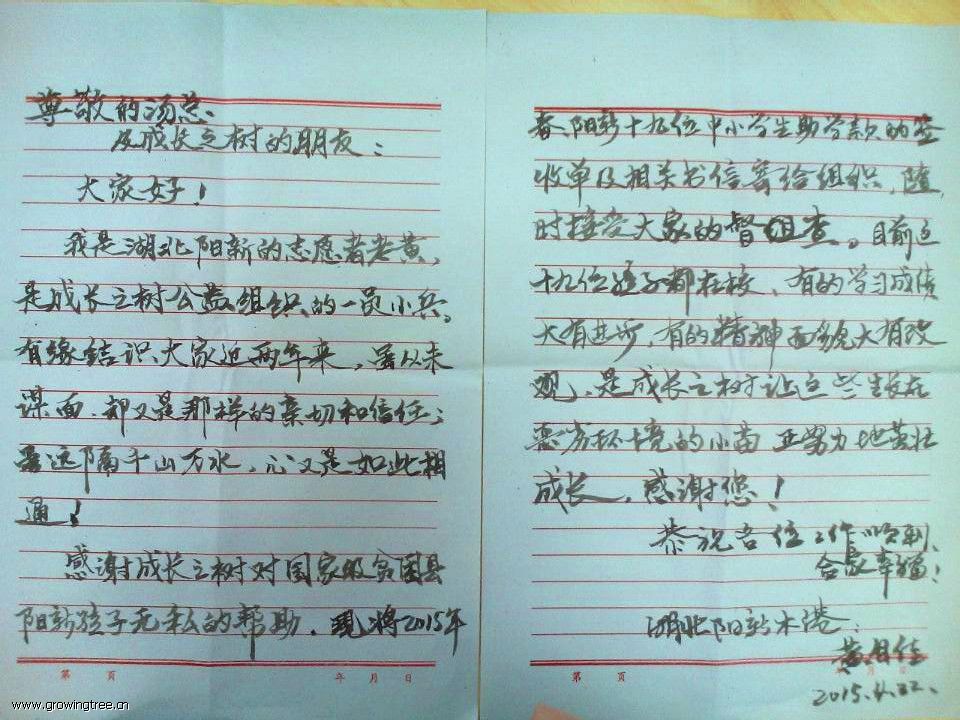 尊敬的汤总:
及成长之树的朋友:
大家好!
我是湖北阳新的志愿者老黄,
是成长之树公益组织的一员小兵。
有缘结识大家近两年来,虽从未
谋面,却又是那样的亲切和信任;
虽远隔千山万水,心又是如此相
通!
感谢成长之树对国家级贫困县
阳新孩子无私的帮助,现将2015年
春阳新十九位中小学生助学款的签
收单及相关书信寄给组织,随
时接受大家的督查。目前这
十九位孩子都在校,有的学习成绩
大有进步,有的精神面貌大有改
观,是成长之树让这些生长在
恶劣环境的小苗正努力地茁壮
成长,感谢您!
恭祝各位工作顺利,
合家幸福!
湖北阳新木港:
黄佳
2015.4.22.
第 页 年 月 日
第 页
www.growingtree.cn